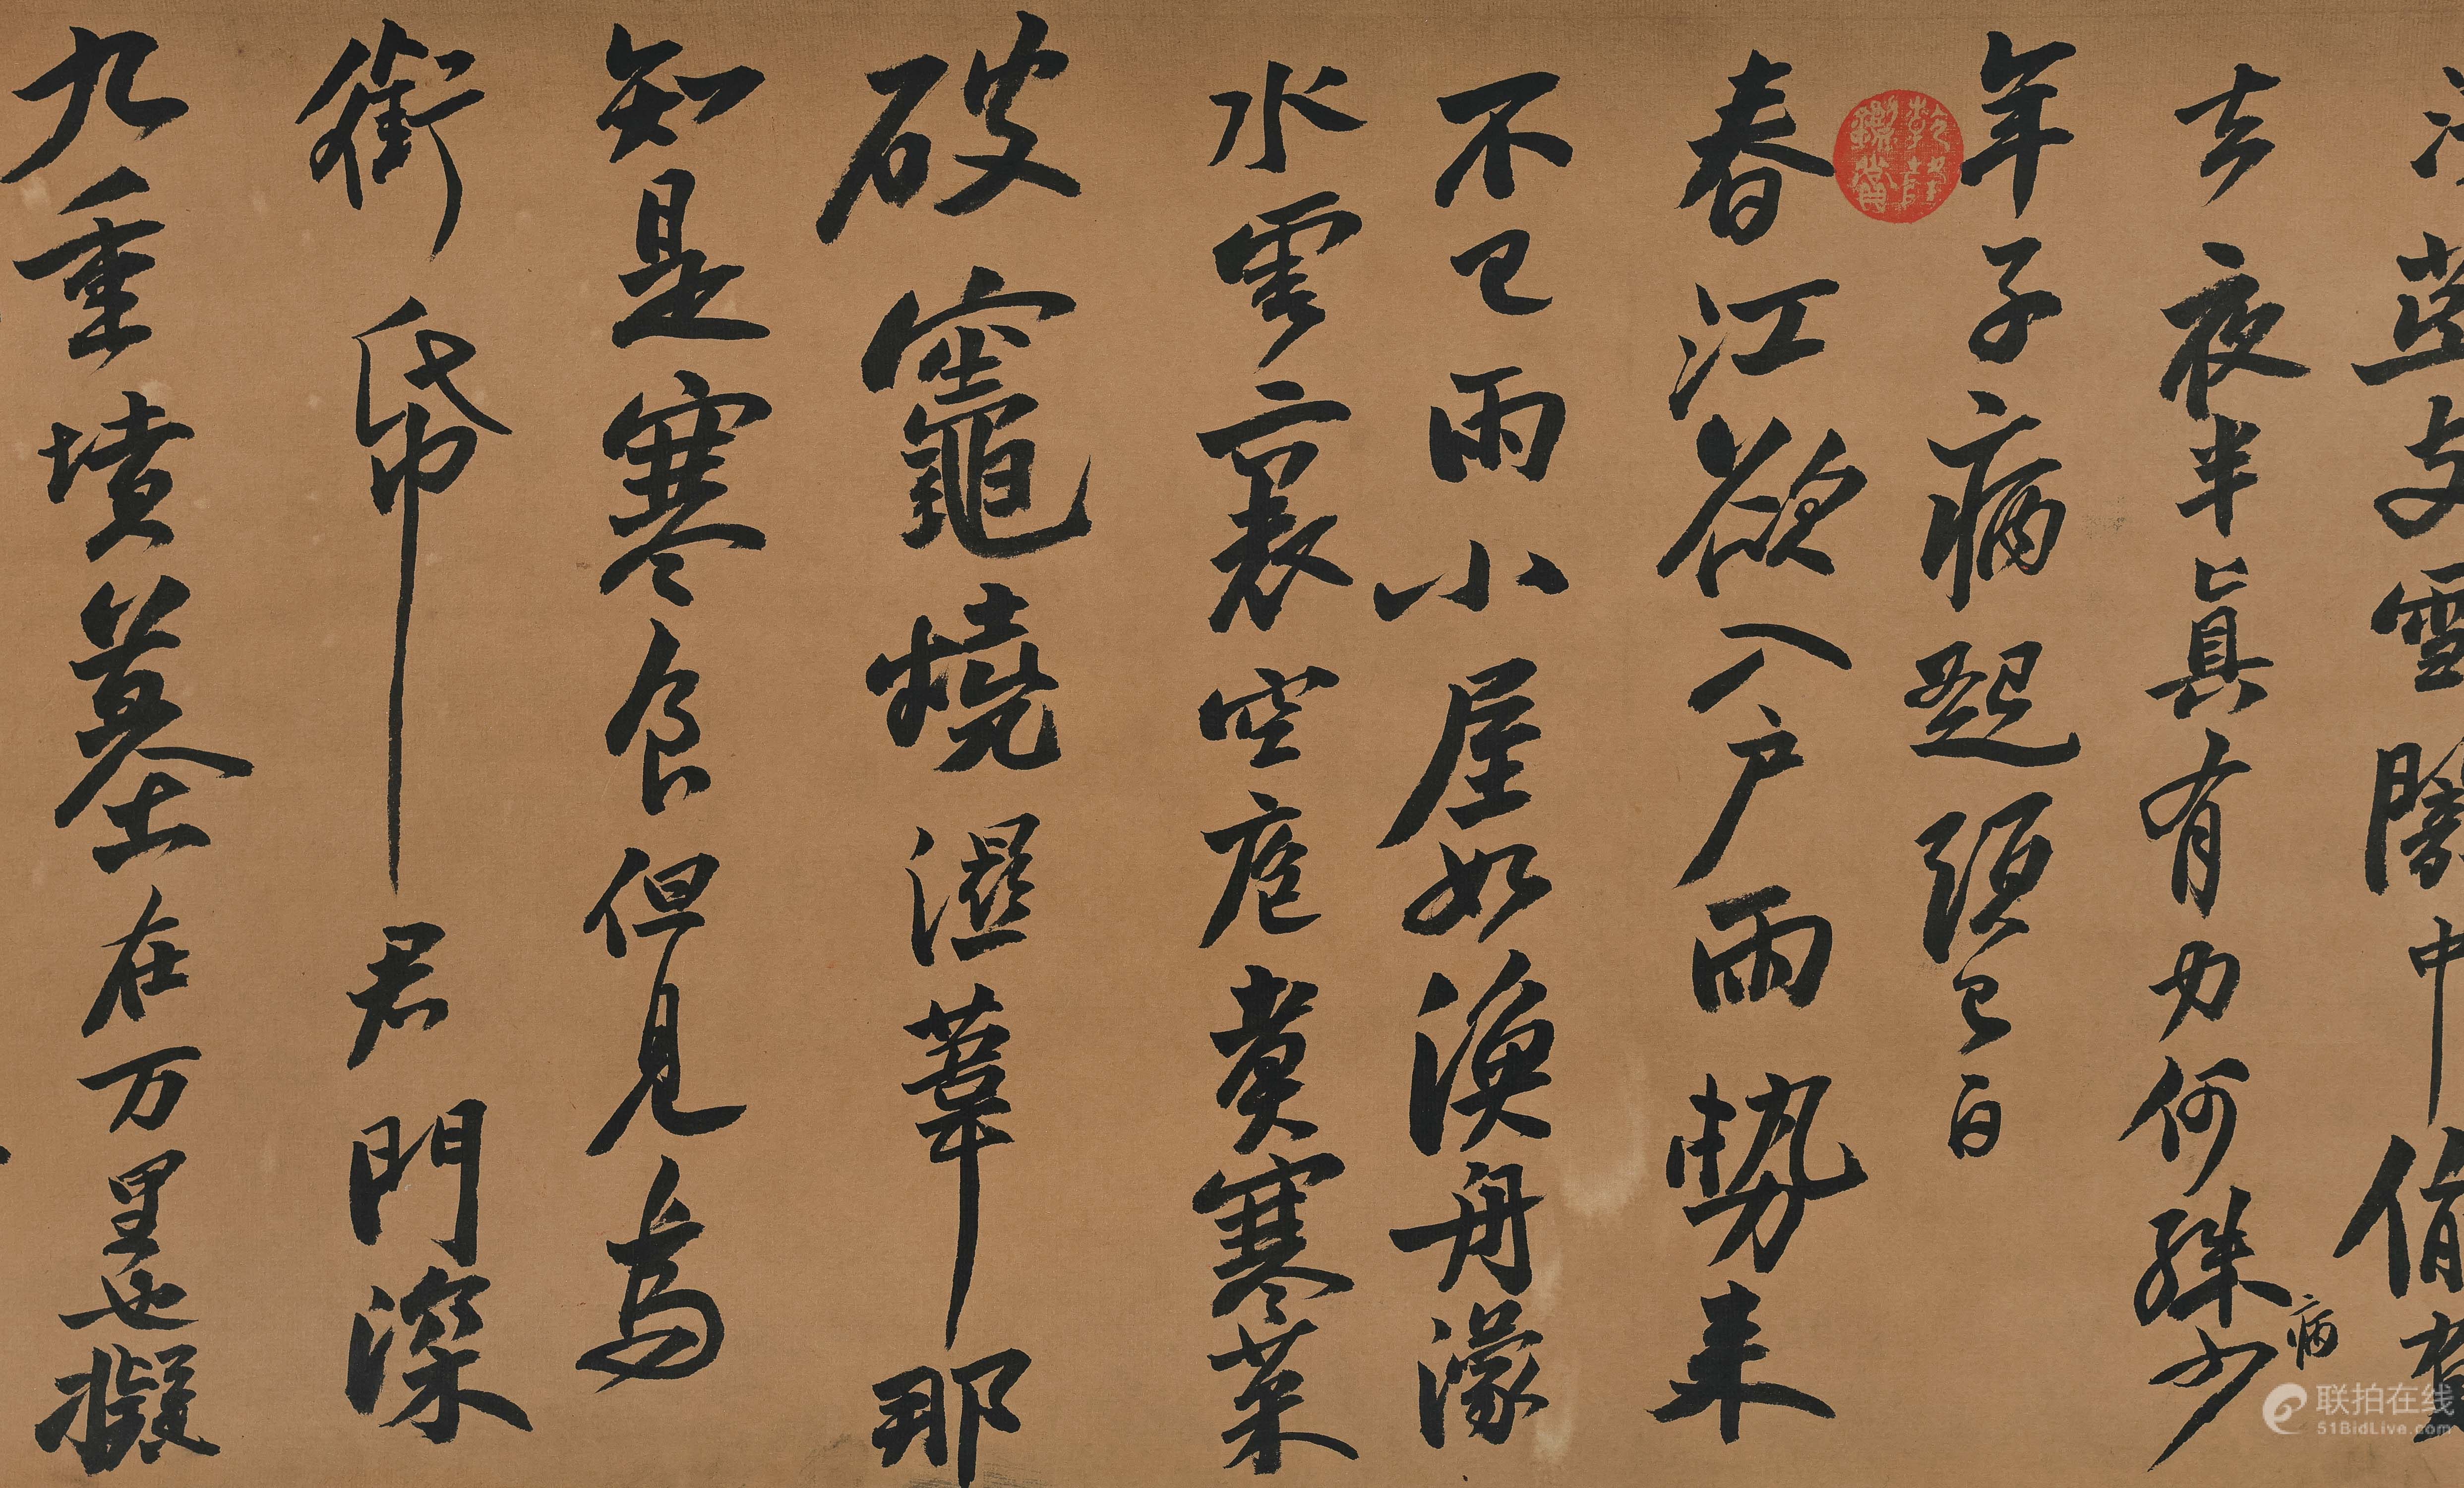 燕支雪闇中偷負
去夜半真有力何殊少
病
年子病起頭已白
春江欲入户雨勢来
不已雨小屋如漁舟濛
水雲裏空庖煑寒菜
破竈燒濕葦那
知是寒食但見烏
銜帋君門深
九重墳墓在万里也擬
乾隆鑑賞
联拍在线
51BidLive.com